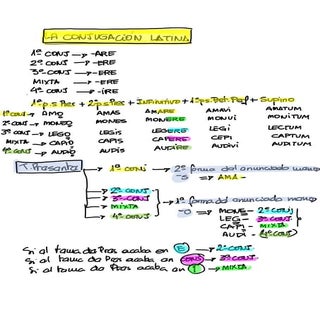 LA CONJUGACIÓN LATINA
1ª CONJ → -ARE
2ª CONJ → -ERE
3ª CONJ → -ERE
MIXTA → -ERE
4ª CONJ → -IRE
1ª p.s Pres + 2ª p.s Pres + Infinitivo + 1ª p.s Pret. Perf + Supino
1ª CONJ → AMO AMAS AMARE AMAVI AMATUM
2ª CONJ → MONEO MONES MONERE MONUI MONITUM
3ª CONJ → LEGO LEGIS LEGERE LEGI LECTUM
MIXTA → CAPIO CAPIS CAPERE CEPI CAPTUM
4ª CONJ → AUDIO AUDIS AUDIRE AUDIVI AUDITUM
T. Presente → 1ª CONJ → 2ª forma del enunciado menos
-S → AMA-
2ª CONJ
3ª CONJ
MIXTA
4ª CONJ
1ª forma del enunciado menos
-O → MONE- 2ª CONJ
LEG- 3ª CONJ
CAPI- MIXTA
AUDI- 4ª CONJ
Si al tema de Pres acaba en E → 2ª CONJ
Si al tema de Pres acaba en CONS → 3ª CONJ
Si al tema de Pres acaba en I → MIXTA